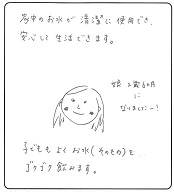 家中のお水が清潔に使用でき、
安心して生活できます。
娘2歳6ヶ月
に
なりましたー!
子どももよくお水(そのもの)を…
ゴクゴク飲みます。